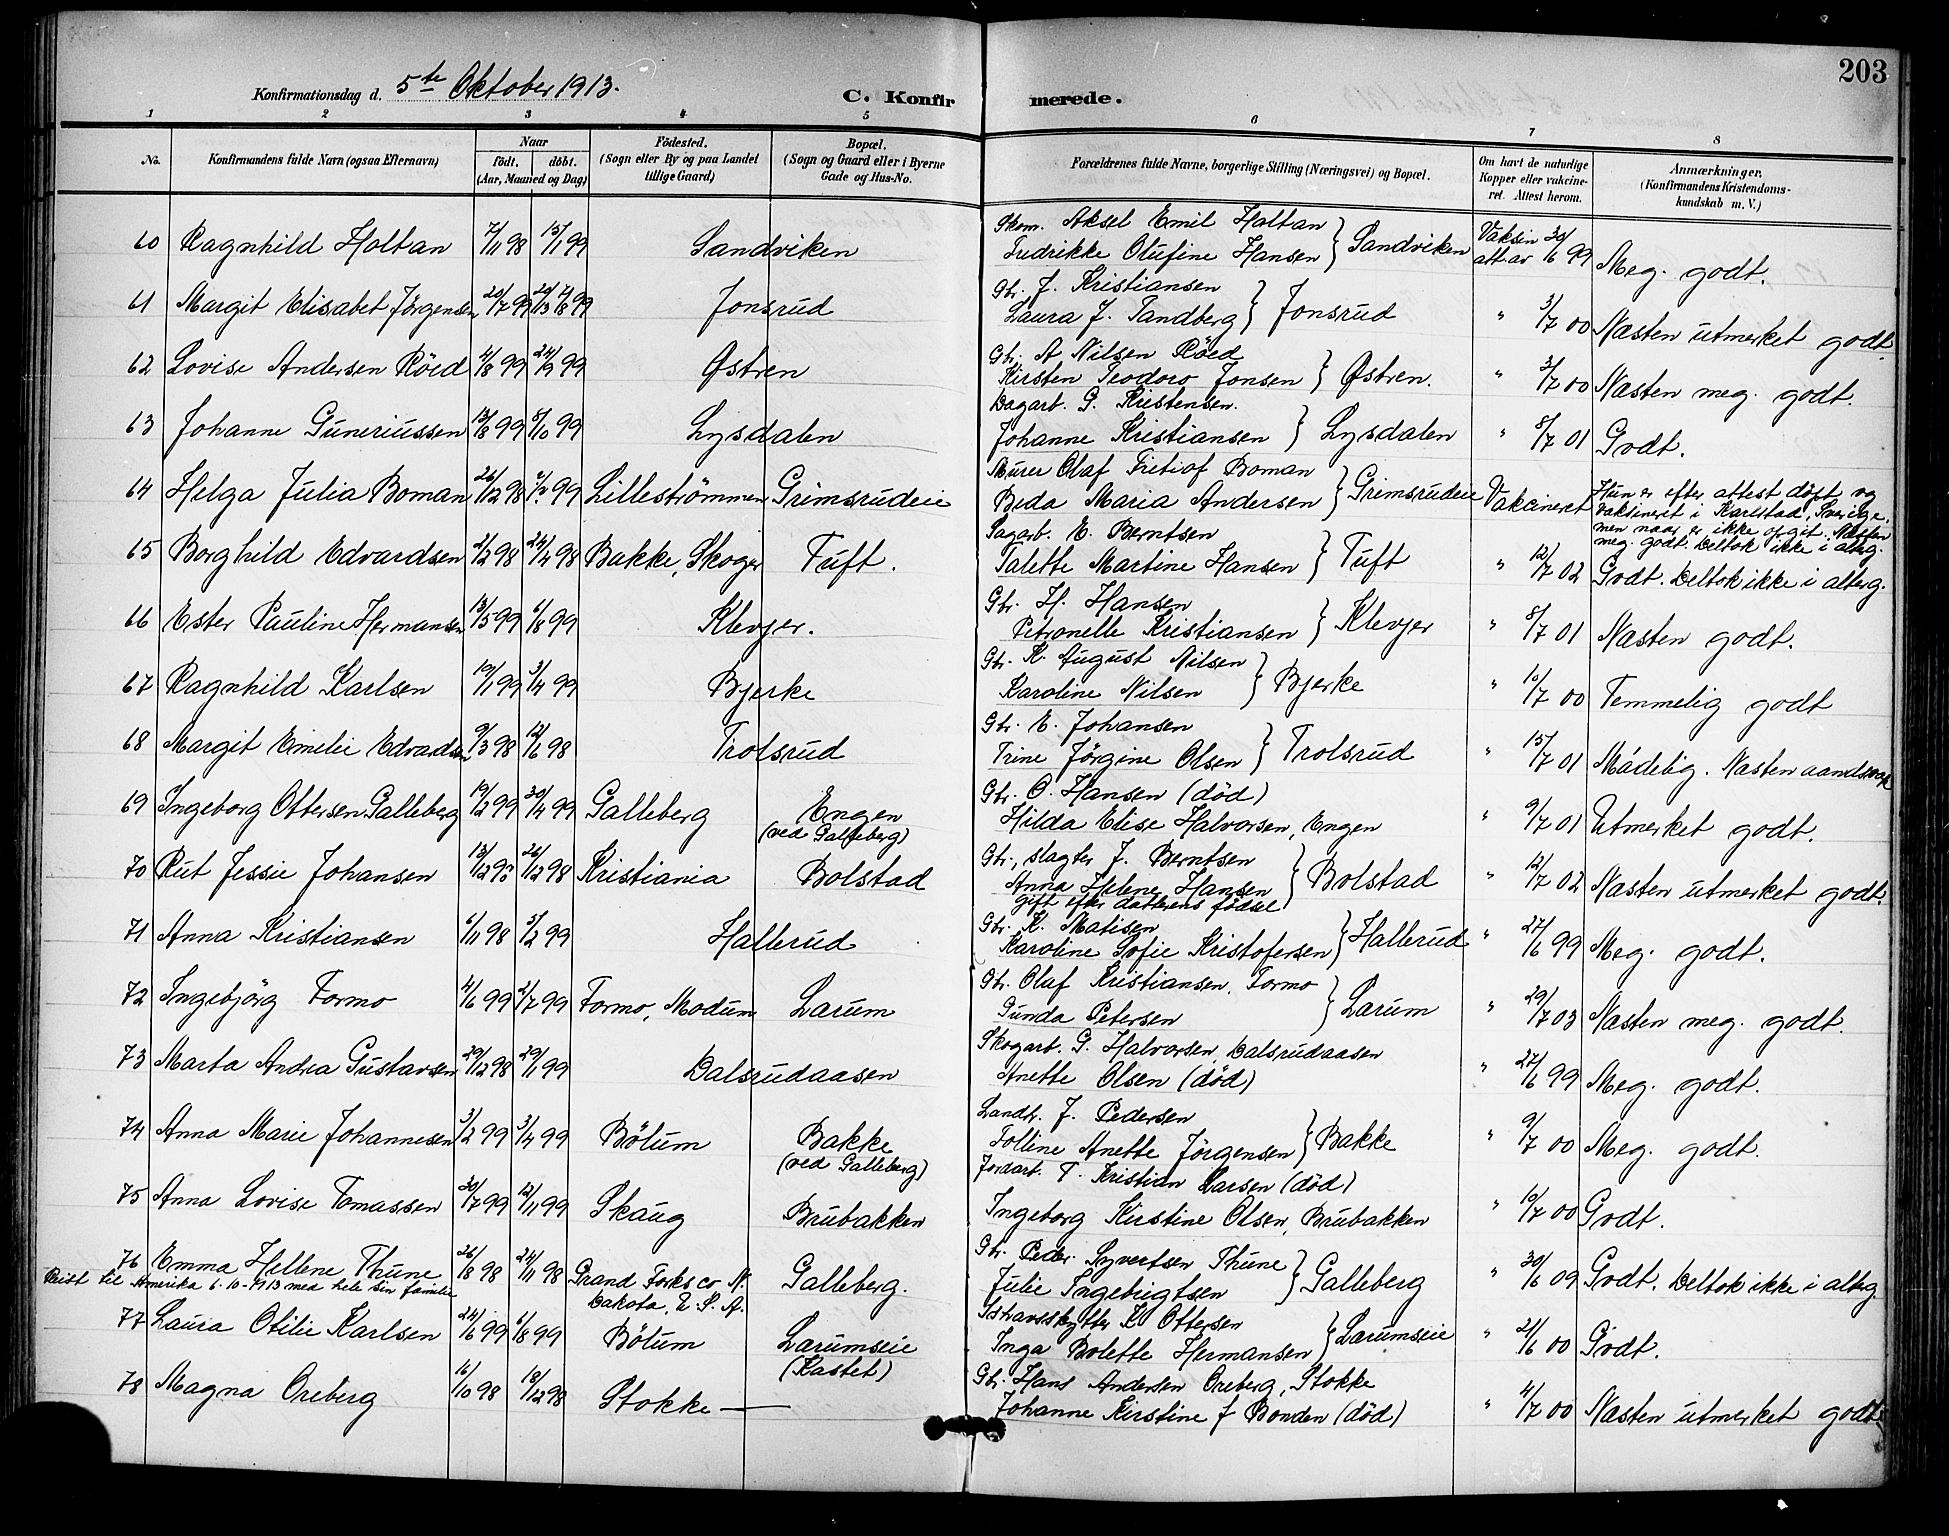 203
Konfirmationsdag d. 5te Oktober 1913.
C. Konfirmerede.
1 2 3 4 5 6 7 8
No. Konfirmandens fulde Navn (ogsaa Efternavn) Naar födt. döbt. (Aar, Maaned og Dag) Födested. (Sogn eller By og paa Landet tillige Gaard) Bopæl. (Sogn og Gaard eller i Byerne Gade og Hus-No. Forældrenes fulde Navne, borgerlige Stilling (Næringsvei) og Bopæl. Om havt de naturlige Kopper eller vakcineret. Attest herom. Anmærkninger. (Konfirmandens Kristendomskundskab m. V.)
60 Ragnhild Holtan 7/11 98 15/1 99 Sandviken Skom. Aksel Emil Holtan
Fredrikke Olufine Hansen } Sandviken Vaksin att. av 30/6 99 Meg. godt.
61 Margit Elisabet Jörgensen 20/7 99 Jonsrud Gbr. J. Kristiansen
Laura J. Tandberg } Jonsrud " 3/7 00 Næsten utmerket godt.
62 Lovise Andersen Röed 4/8 99 24/9 99 Østren Gbr. A Nilsen Röed
Kirsten Teodoro Jonsen } Østren. " 3/7 00 Næsten meg. godt.
63 Johanne Guneriussen 12/8 99 8/10 99 Lysdalen Dagarb. G. Kristensen.
Johanne Kristiansen } Lysdalen " 8/7 01 Godt.
64 Helga Julia Boman 26/12 98 Lilleströmmen Grimsrudeie Murer Olaf Fritiof Boman
Beda Maria Andersen } Grimsrudeie Vakcineret Hun er efter attest döpt og
vaksineret i Karlstad, Sverige,
men naar er ikke opgit. Næsten
meg. godt. Deltok ikke i alterg.
65 Borghild Edvardsen 2/2 98 24/4 98 Bakke, Skoger Tuft. Sagarb. E. Berntsen
Talette Martine Hansen } Tuft " 12/7 02 Godt. Deltok ikke i alterg.
66 Ester Pauline Hermansen 13/5 99 6/8 99 Klevjer. Gbr. H. Hansen
Petronelle Kristiansen } Klevjer " 8/7 01 Næsten godt.
67 Ragnhild Karlsen 19/1 99 3/4 99 Bjerke Gbr. K. August Nilsen
Karoline Nilsen } Bjerke " 10/7 00 Temmelig godt
68 Margit Emelie Edvardsen 9/3 98 12/6 98 Trolsrud Gbr. E. Johansen
Trine Jörgine Olsen } Trolsrud " 15/7 01 Mådelig. Næsten aandssvak
69 Ingeborg Ottersen Galleberg 19/2 99 30/4 99 Galleberg Engen
(ved Galleberg) Gbr. O. Hansen (död)
Hilda Elise Halvorsen, Engen " 9/7 01 Utmerket godt.
70 Rut Jessie Johansen 26/12 98 Kristiania Bolstad Gbr., slagter J. Berntsen
Anna Helene Hansen } Bolstad
gift efter datterens födsel " 12/7 02 Næsten utmerket godt.
71 Anna Kristiansen 6/11 98 5/2 99 Hallerud Gbr. K. Matisen
Karoline Sofie Kristofersen } Hallerud " 27/6 99 Meg. godt.
72 Ingebjörg Formo 4/6 99 2/7 99 Formo, Modum Larum Gbr. Olaf Kristiansen Formo
Gunda Petersen } Larum " 29/7 03 Næsten meg. godt.
73 Marta Andrea Gustavsen 29/12 98 29/1 99 Dalsrudaasen Skogarb. G. Halvorsen, Dalsrudaasen
Anette Olsen (död) " 27/6 99 Meg. godt.
74 Anna Marie Johannesen 3/2 99 3/4 99 Bölum Bakke
(ved Galleberg) Landh. J. Pedersen
Tolline Anette Jörgensen } Bakke " 9/7 00 Meg. godt.
75 Anna Lovise Tomassen 30/7 99 12/11 99 Skaug Brubakken Jordarb. T. Kristian Larsen (död)
Ingeborg Kirstine Olsen, Brubakken " 10/7 00 Godt.
76 Emma Hellene Thune 26/8 98 24/11 98 Grand Forks co N.
Dakota, U. S. A. Galleberg. Gbr. Peder Syvertsen Thune
Julie Ingebrigtsen } Galleberg " 30/6 09 Godt. Deltok ikke i alterg.
Reist til Amerika 6-10-1913 med hele sin familie
77 Laura Otilie Karlsen 24/6 99 6/8 99 Bölum Larumseie
(Kastet) K Ottersen
Inga Bolette Hermansen } Larumseie " 21/6 00 Godt.
78 Magna Oreberg 16/10 98 18/12 98 Stokke — Gbr. Hans Andersen Oreberg, Stokke
Johanne Kirstine f Bonden (död) " 4/7 00 Næsten utmerket godt.